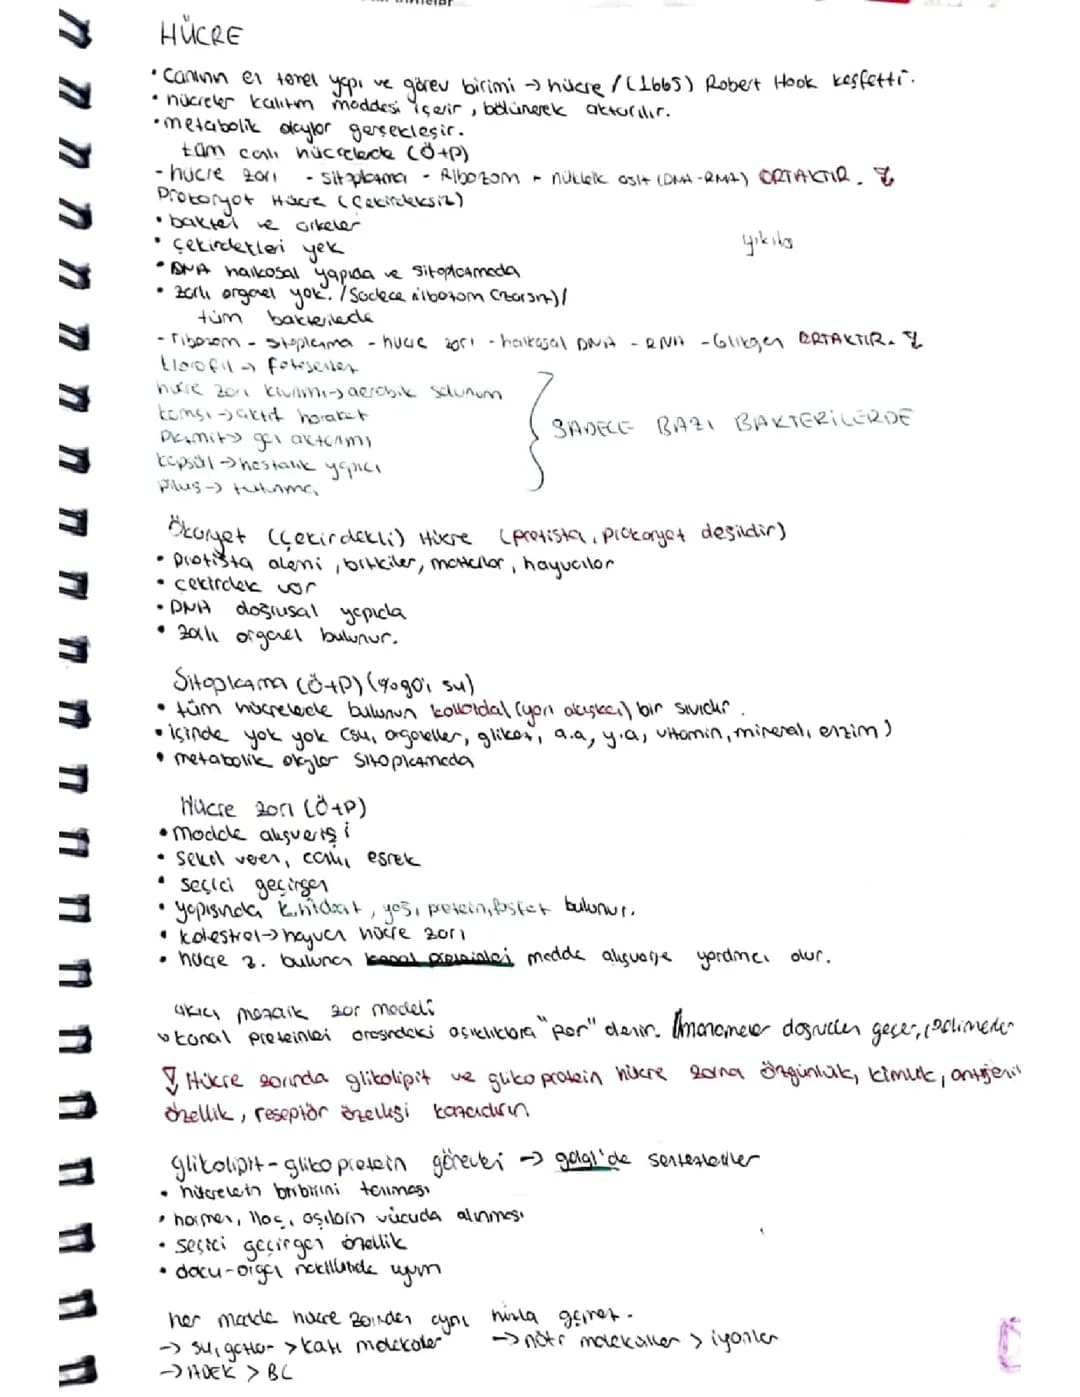 HÜCRE
• Canlının en temel yapı ve görev birimi → hücre / (1665) Robert Hook keşfetti.
• hücreler kalıtım maddesi içerir, bölünerek aktarılır.
• metabolik olaylar gerçekleşir.
tüm canlı hücrelerde (Ö+P)
- hücre zarı - sitoplazma - Ribozom - nükleik asit (DNA-RNA) ORTAKTIR.
Prokaryot Hücre (Çekirdeksiz)
• bakteri ve arkeler
• çekirdekleri yok
• DNA halkasal yapıda ve sitoplazmada
• zarlı organel yok. / Sadece ribozom (zarsız) /
tüm bakterilerde
- ribozom - sitoplazma - hücre zarı - halkasal DNA - RNA - Glikojen ORTAKTIR.
klorofil → fotosentez
hücre zarı kıvrımı → aerobik solunum
kamçı → aktif hareket
Plazmit → gen aktarımı
kapsül → hastalık yapıcı
pilus → tutunma
SADECE BAZI BAKTERİLERDE
Ökaryot (Çekirdekli) Hücre (protista, prokaryot değildir)
• protista alemi, bitkiler, mantarlar, hayvanlar
• çekirdek var
• DNA doğrusal yapıda
• zarlı organel bulunur.
Sitoplazma (Ö+P) (%90'ı su)
• tüm hücrelerde bulunun kolloidal (yarı akışkan) bir sıvıdır.
• içinde yok yok (su, organeller, glikoz, a.a, y.a, vitamin, mineral, enzim)
• metabolik olaylar sitoplazmada
Hücre zarı (Ö+P)
• madde alışverişi
• şekil veren, canlı, esnek
• seçici geçirgen
• yapısında k.hidrat, yağ, protein, fosfat bulunur.
• kolestrol → hayvan hücre zarı
• hücre z. bulunan kanal proteinleri madde alışverişe yardımcı olur.
akıcı mozaik zar modeli
kanal proteinleri arasındaki açıklıklara "por" denir. (monomerler doğrudan geçer, polimerler
Hücre zarında glikolipit ve glikoprotein hücre zarına özgünlük, kimlik, antijenik
özellik, reseptör özelliği kazandırır
glikolipit-glikoprotein görevleri → golgi'de sentezlenirler
• hücrelerin birbirini tanıması
• hormon, ilaç, aşıların vücuda alınması
• seçici geçirgen özellik
• doku-organ naklinde uyum
her madde hücre zarından aynı hızla geçmez.
→ su, gazlar > katı moleküler
→ nötr moleküller > iyonlar
→ ADEK > BC